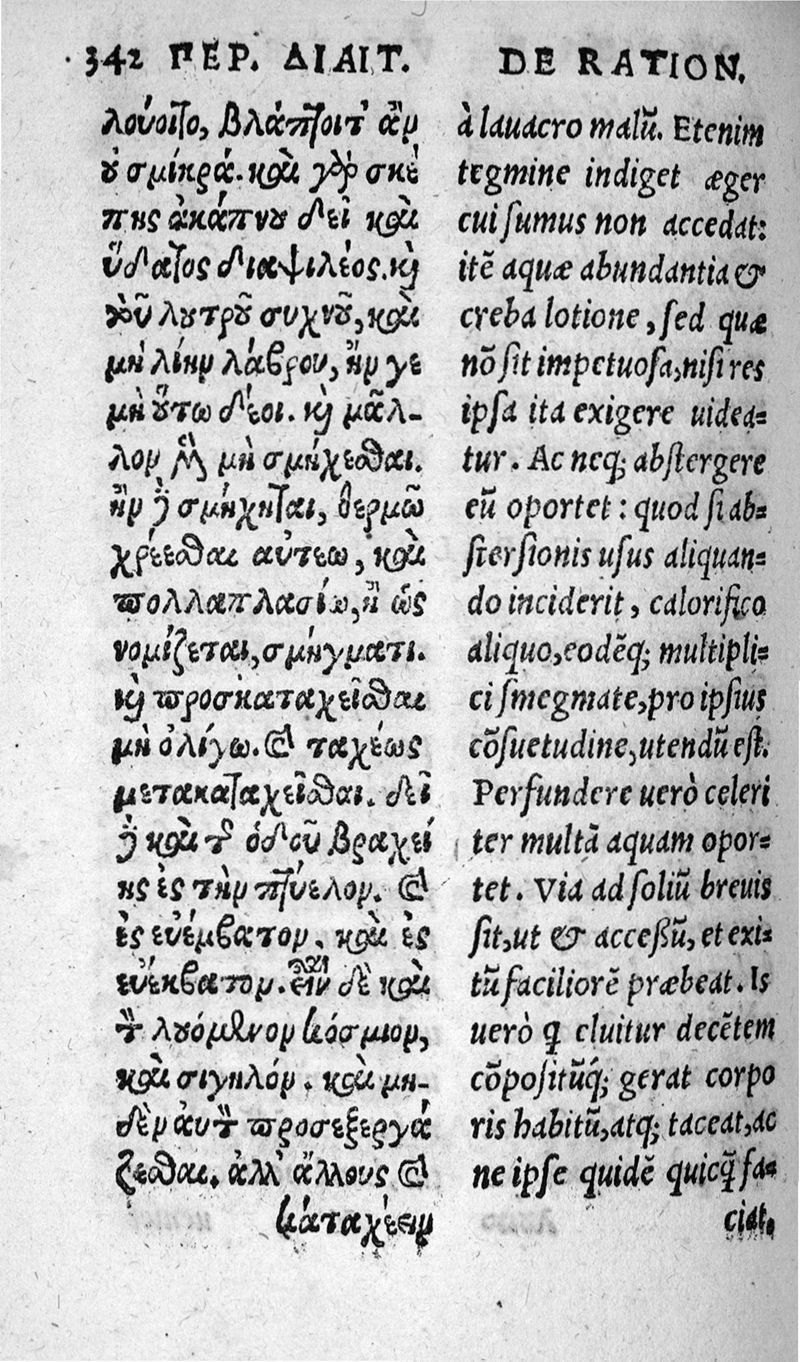 342 ΠΕΡ. ΔΙΑΙΤ.
λούοιτο, βλάπτοιτ' ἂν
οὐ σμικρά. καὶ γὰρ σκέ
πης ἀκάπνου δεῖ καὶ
ὕδατος διαψιλέος. καὶ
τοῦ λουτροῦ συχνοῦ, καὶ
μὴ λίην λάβρου, ἢν γε
μὴ οὕτω δέοι. καὶ μᾶλ-
λον μὲν μὴ σμήχεσθαι.
ἢν δὲ σμήχηται, θερμῷ
χρέεσθαι αὐτέῳ, καὶ
πολλαπλασίῳ, ἢ ὡς
νομίζεται, σμήγματι.
καὶ προσκαταχεῖσθαι
μὴ ὀλίγῳ. καὶ ταχέως
μετακαταχεῖσθαι. δεῖ
δὲ καὶ τῆς ὁδοῦ βραχεί
ης ἐς τὴν πτύελον. καὶ
ἐς εὐέμβατον. καὶ ἐς
εὐέκβατον. εἶναι δὲ καὶ
τὸν λουόμενον κόσμιον,
καὶ σιγηλόν. καὶ μη-
δὲν αὐτὸν προσεξεργά
ζεσθαι. ἀλλ' ἄλλους καὶ
κατάχέειν
DE RATION.
à lauacro malũ. Etenim
tegmine indiget æger
cui fumus non accedat:
itẽ aquæ abundantia &
creba lotione, sed quæ
nõ sit impetuosa, nisi res
ipsa ita exigere uidea-
tur. Ac neq; abstergere
eũ oportet: quod si ab-
stersionis usus aliquan-
do inciderit, calorifico
aliquo, eodẽq; multipli-
ci smegmate, pro ipsius
cõsuetudine, utendũ est.
Perfundere uerò celeri
ter multã aquam opor-
tet. Via ad soliũ breuis
sit, ut & accessũ, et exi-
tũ faciliorẽ præbeat. Is
uerò q̃ cluitur decẽtem
cõpositũq́; gerat corpo
ris habitũ, atq; taceat, ac
ne ipse quidẽ quicq̃ fa-
ciat.